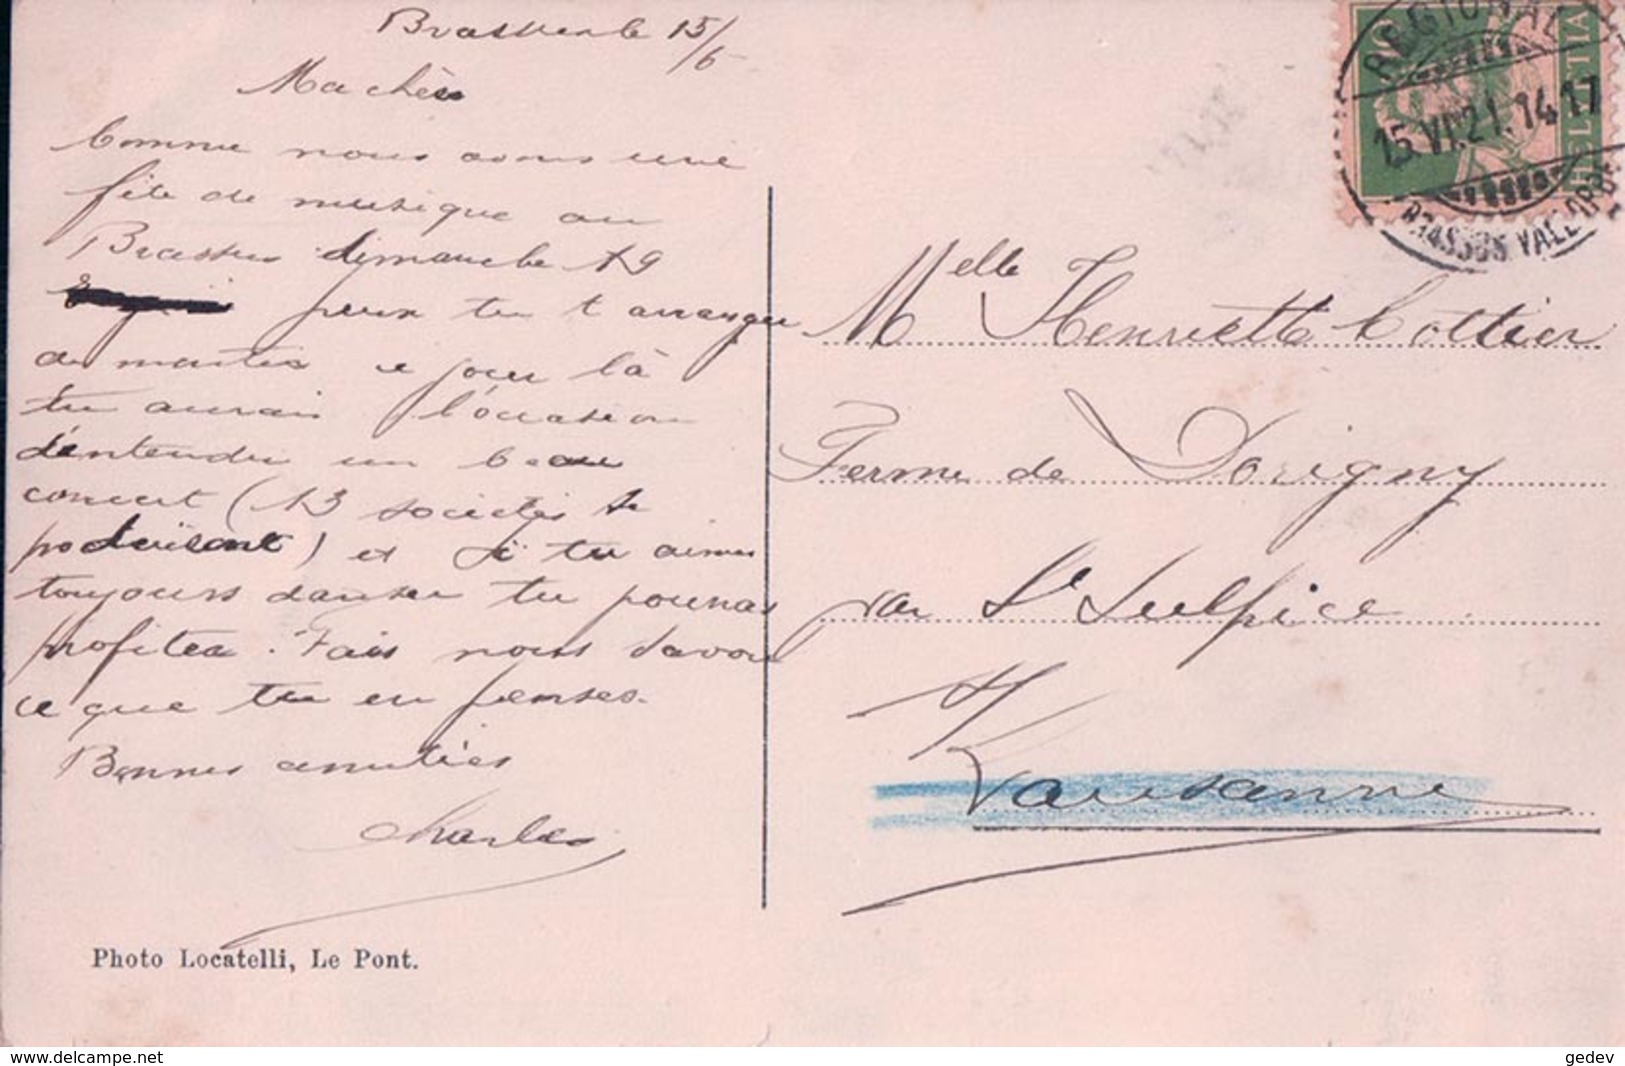 Brassus le 15/6
Ma chère
Comme nous avons une
fête de musique au
Brassus dimanche 19
peux tu t'arranger
de monter ce jour là
tu aurais l'occasion
d'entendre un beau
concert (13 sociétés se
produisent) et si tu aimes
toujours danser tu pourras
profiter. Fais nous savoir
ce que tu en penses.
Bonnes amitiés
Charles
Photo Locatelli, Le Pont.
REGIONAL
15.VI.21.14 17
BRASSUS VALLORBE
HELVETIA
Melle Henriette Cottier
Ferme de Dorigny
par St Sulpice
s/ Lausanne
www.delcampe.net
gedev